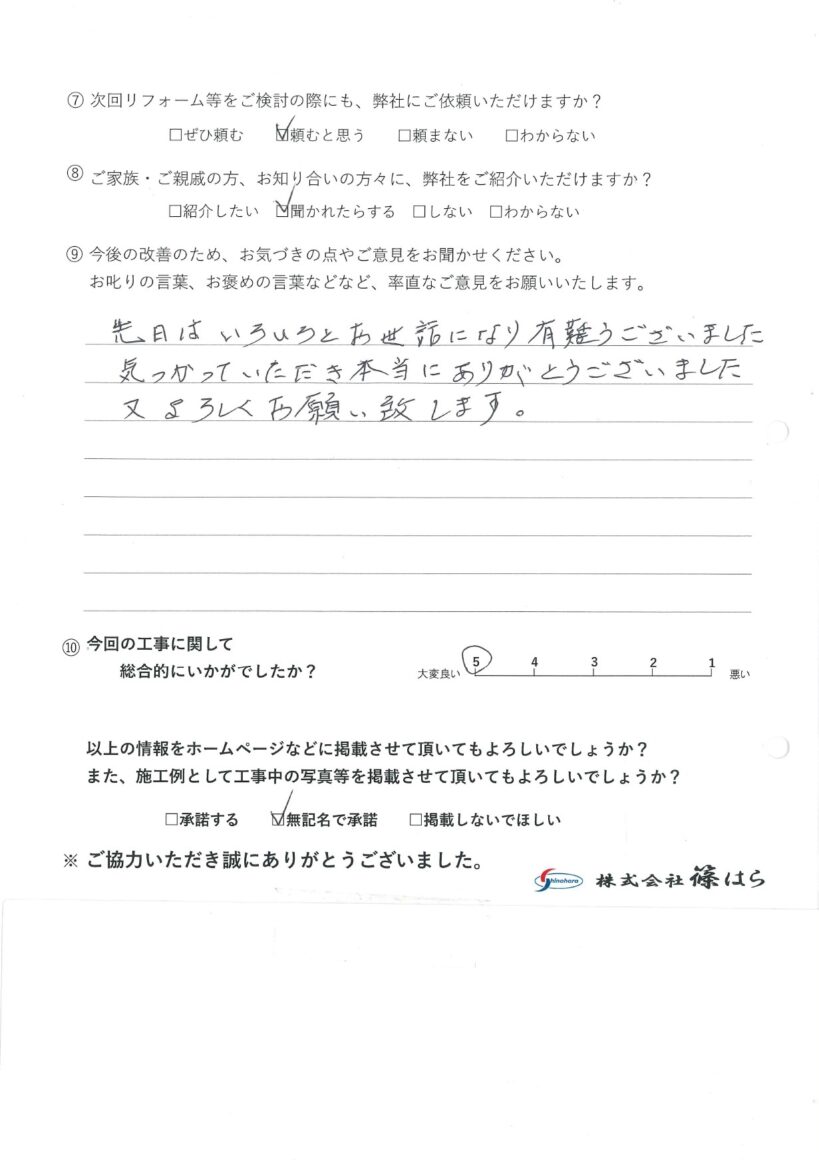 ⑦ 次回リフォーム等をご検討の際にも、弊社にご依頼いただけますか？
□ぜひ頼む ☑頼むと思う □頼まない □わからない
⑧ ご家族・ご親戚の方、お知り合いの方々に、弊社をご紹介いただけますか？
□紹介したい ☑聞かれたらする □しない □わからない
⑨ 今後の改善のため、お気づきの点やご意見をお聞かせください。
お叱りの言葉、お褒めの言葉などなど、率直なご意見をお願いいたします。
先日はいろいろとお世話になり有難うございました
気つかっていただき本当にありがとうございました
又よろしくお願い致します。
⑩ 今回の工事に関して
総合的にいかがでしたか？
大変良い 5 4 3 2 1 悪い
以上の情報をホームページなどに掲載させて頂いてもよろしいでしょうか？
また、施工例として工事中の写真等を掲載させて頂いてもよろしいでしょうか？
□承諾する ☑無記名で承諾 □掲載しないでほしい
※ ご協力いただき誠にありがとうございました。
Shinohara 株式会社 篠はら